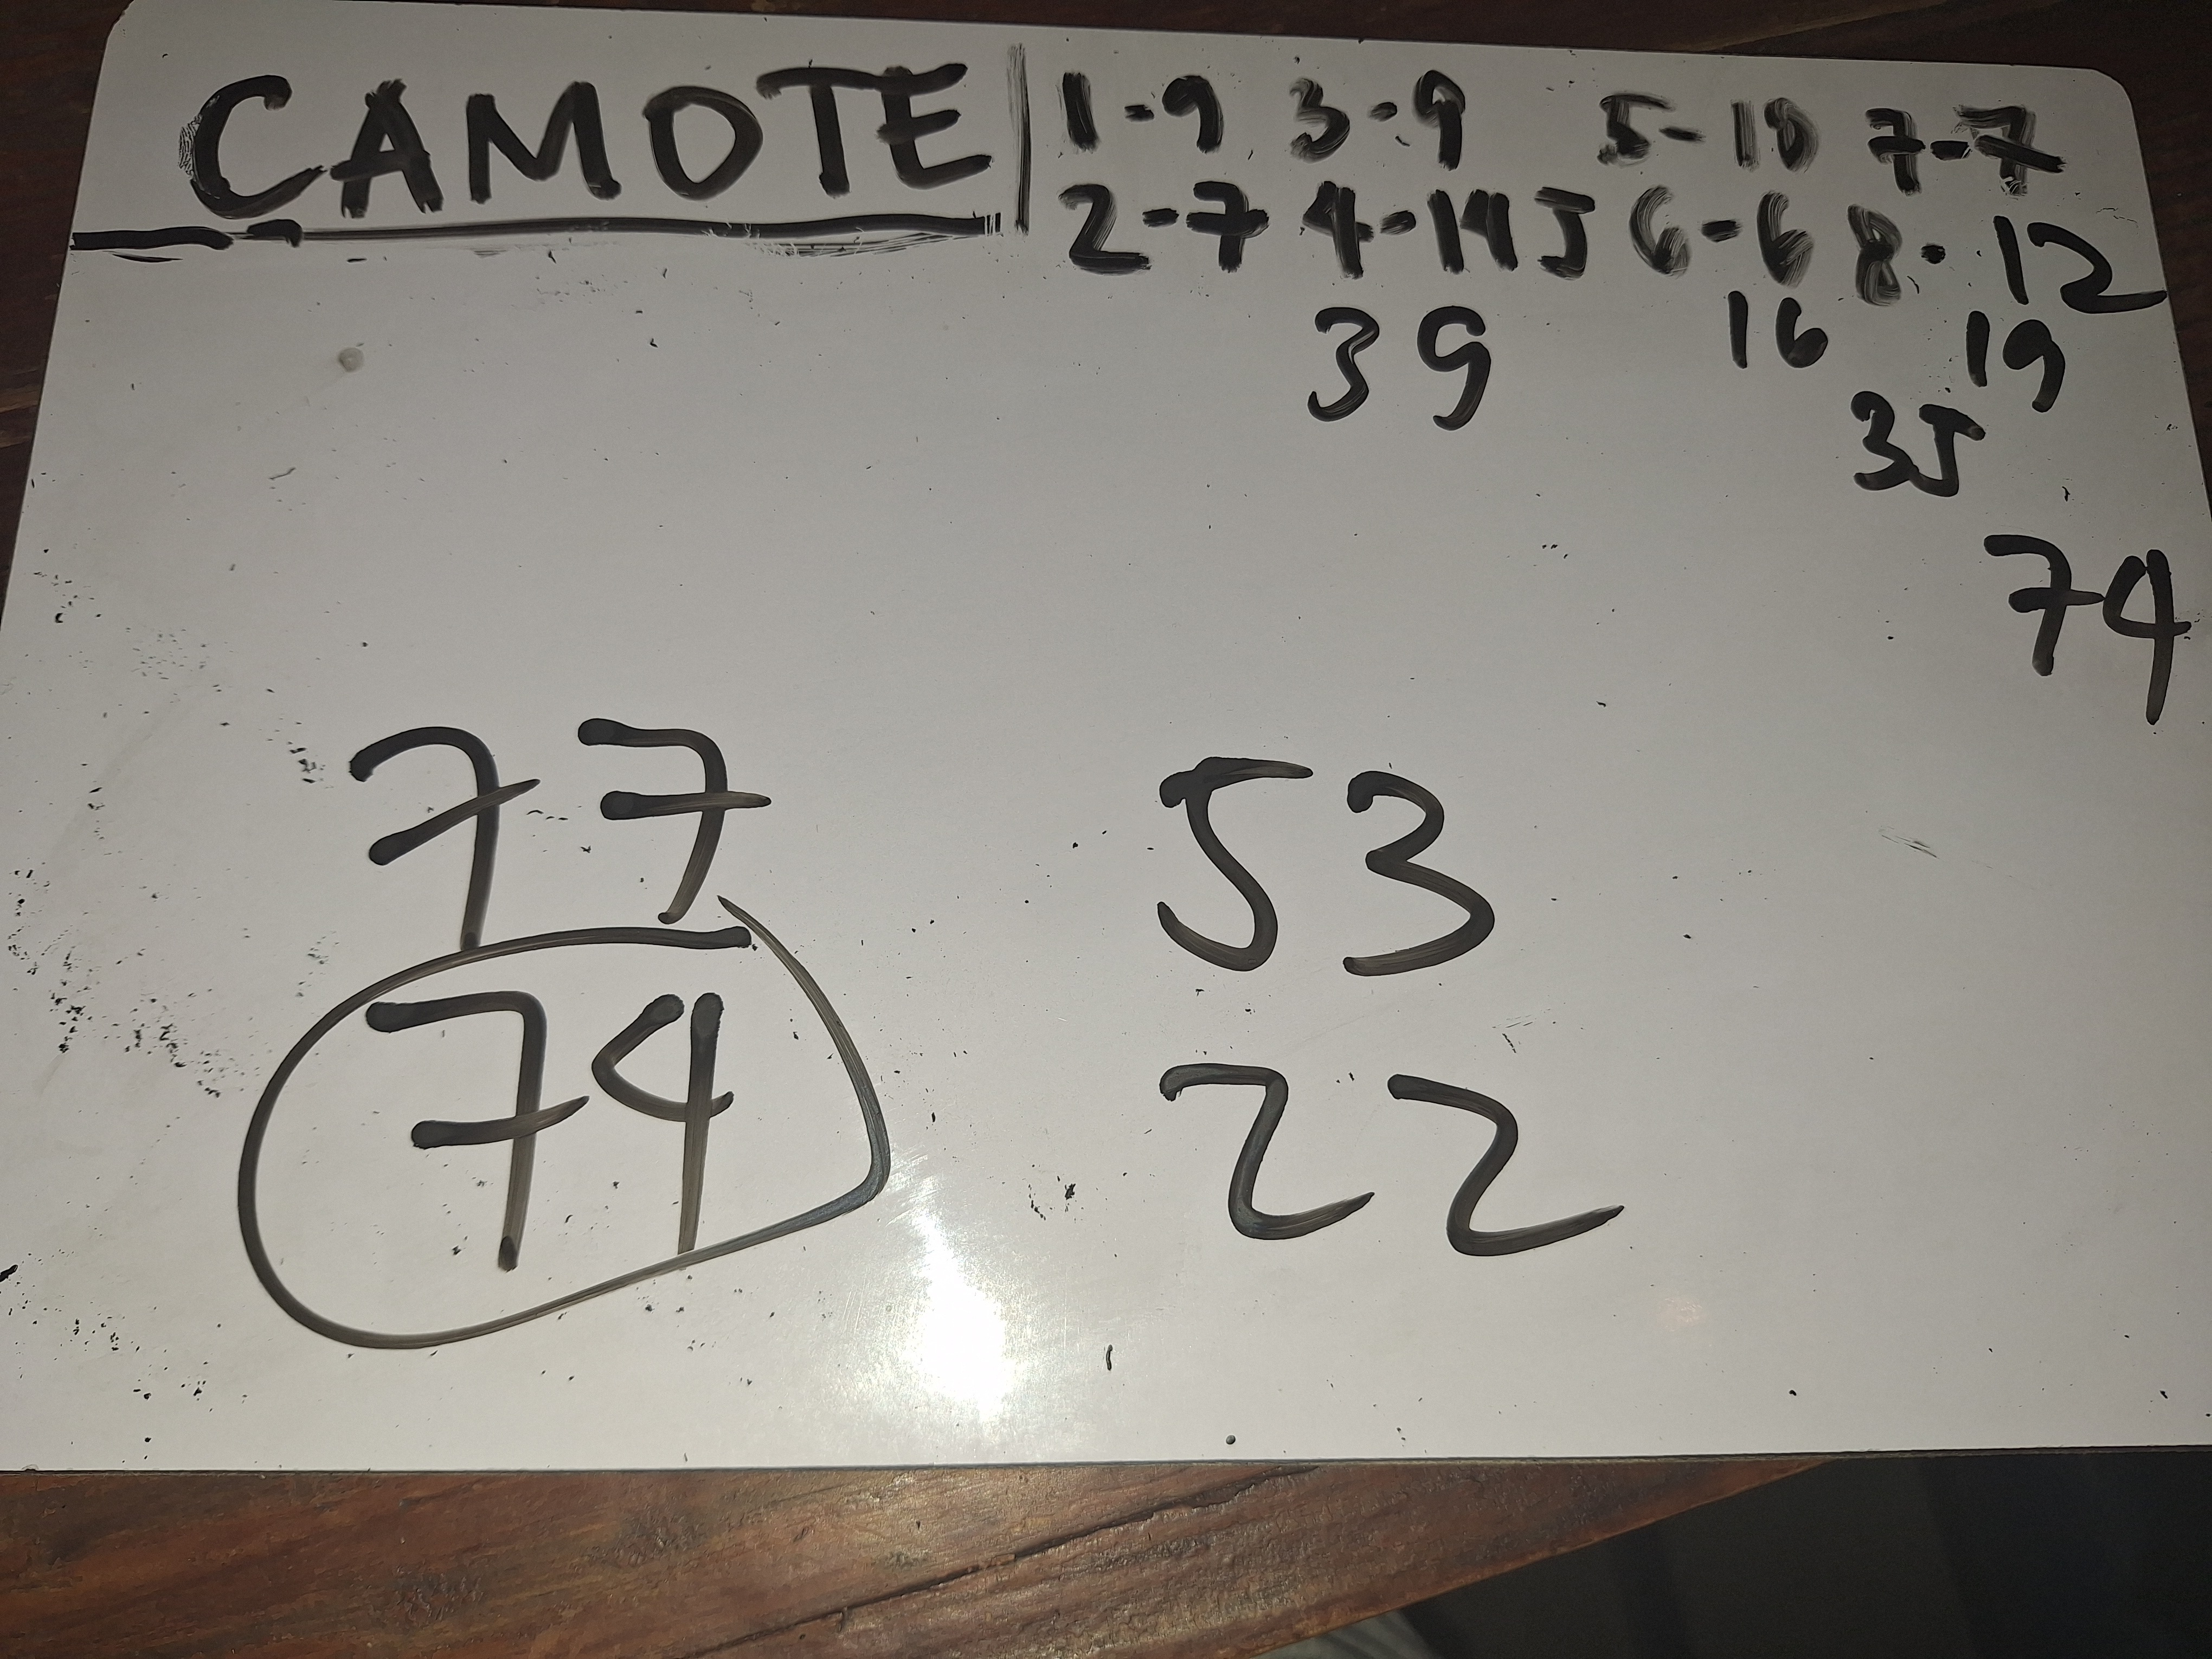 CAMOTE 1-9 3-9 5-10 7-7
2-7 4-14 J 6-6 8-12
39 16 19
35
74
77 53
74 22